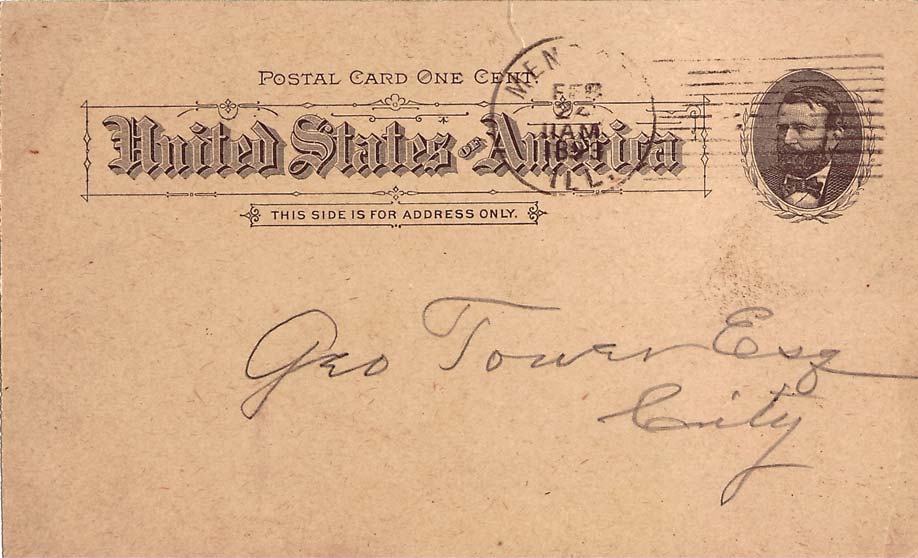 POSTAL CARD ONE CENT.
United States OF America
THIS SIDE IS FOR ADDRESS ONLY.
MEN
FEB
22
11 AM
ILL.
Geo Tower Esq
City